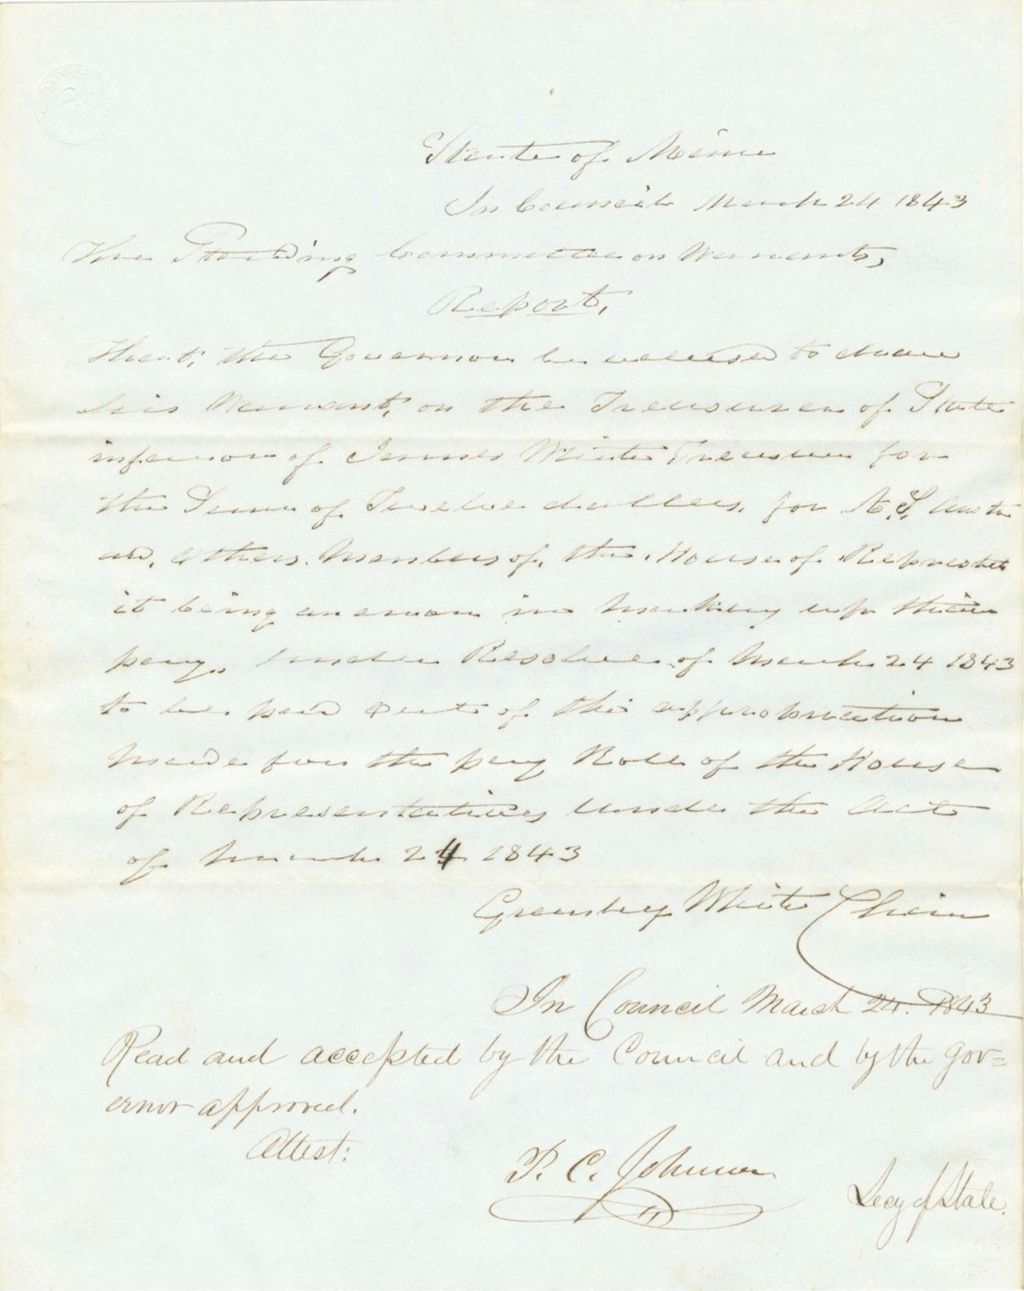 State of Maine
In Council March 24 1843
The Standing Committee on Warrants,
Report,
That, the Governor be advised to draw
his Warrant, on the Treasurer of State
in favor of James White Treasurer for
the Sum of Twelve dollars, for A. S.
and others members of, the House of
it being an error in making up their
pay, under Resolve of March 24 1843
to be paid out of the appropriation
made for the pay Roll of the House
of Representatives under the Act
of March 24 1843
Greenlief White Chair
In Council March 24. 1843
Read and accepted by the Council and by the Gov=
ernor approved.
Attest:
P. C. Johnson
Secy of State.